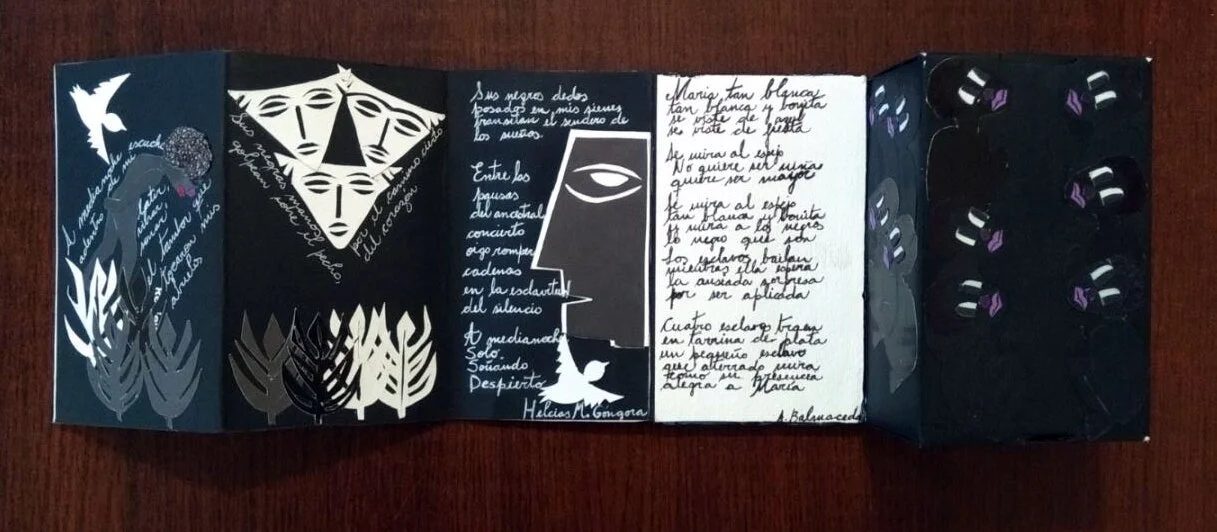 A medianoche escucho
adentro de mi
latir,
sonar
el tambor que
tocaron mis
abuelos
Sus negras manos
sobre el pecho,
por el camino cierto
del corazon
Sus negros dedos
posados en mis sienes
transitan el sendero de
los sueños.
Entre las
pausas
del ancestral
concierto
oigo romper
cadenas
en la esclavitud
del silencio
A medianoche
Solo.
Soñando
Despierto
Helcías M. Góngora
Maria tan blanca
tan blanca y bonita
se viste de azul
se viste de fiesta
Se mira al espejo
No quiere ser niña
quiere ser mayor
Se mira al espejo
tan blanca y bonita
y mira a los negros
lo negro que son
Los esclavos bailan
mientras ella espera
la ansiada sorpresa
por ser aplicada
Cuatro esclavos traen
en tarrina de plata
un pequeño esclavo
que aterrado mira
como su presencia
alegra a Maria
A. Balmaceda